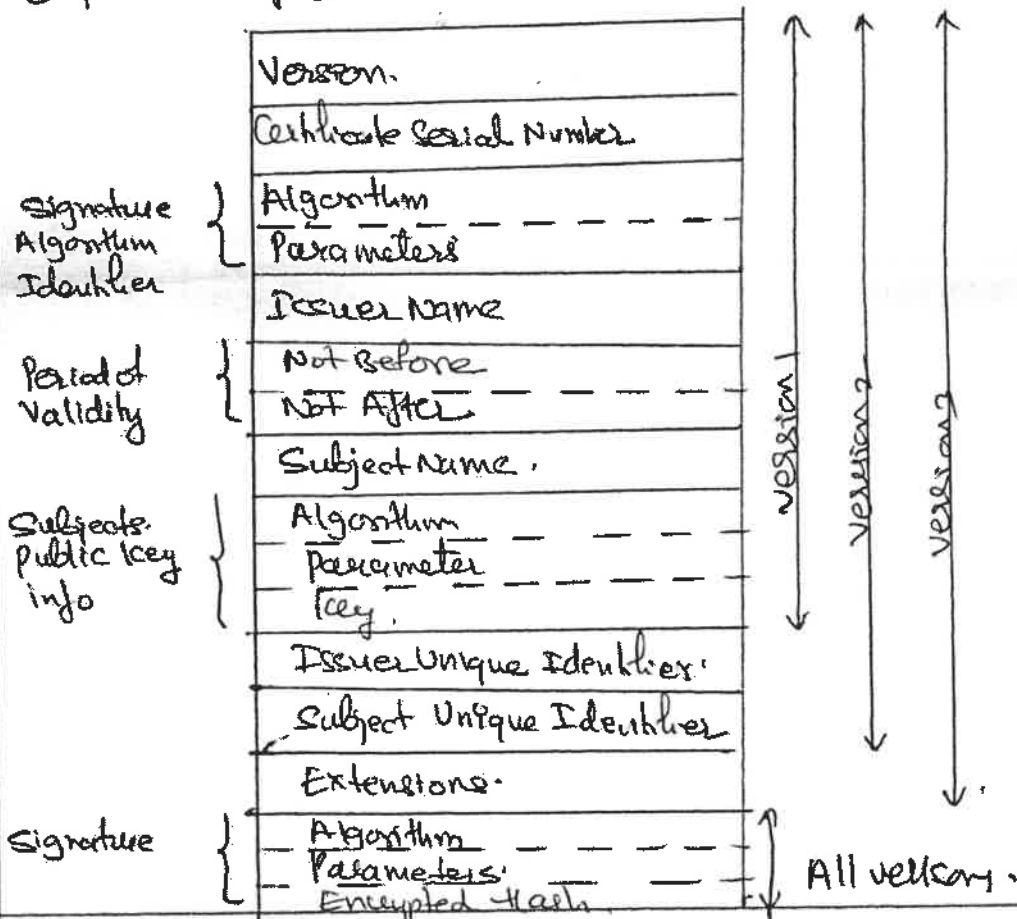 Version.
Certificate Serial Number
Signature
Algorithm
Identifier
Algorithm
Parameters
Issuer Name
Period of
Validity
Not Before
Not After
Subject Name.
Subjects
public key
info
Algorithm
Parameter
Key.
Issuer Unique Identifier.
Subject Unique Identifier
Extensions.
Signature
Algorithm
Parameters.
Encrypted Hash
version 1
version 2
version 3
All versions.